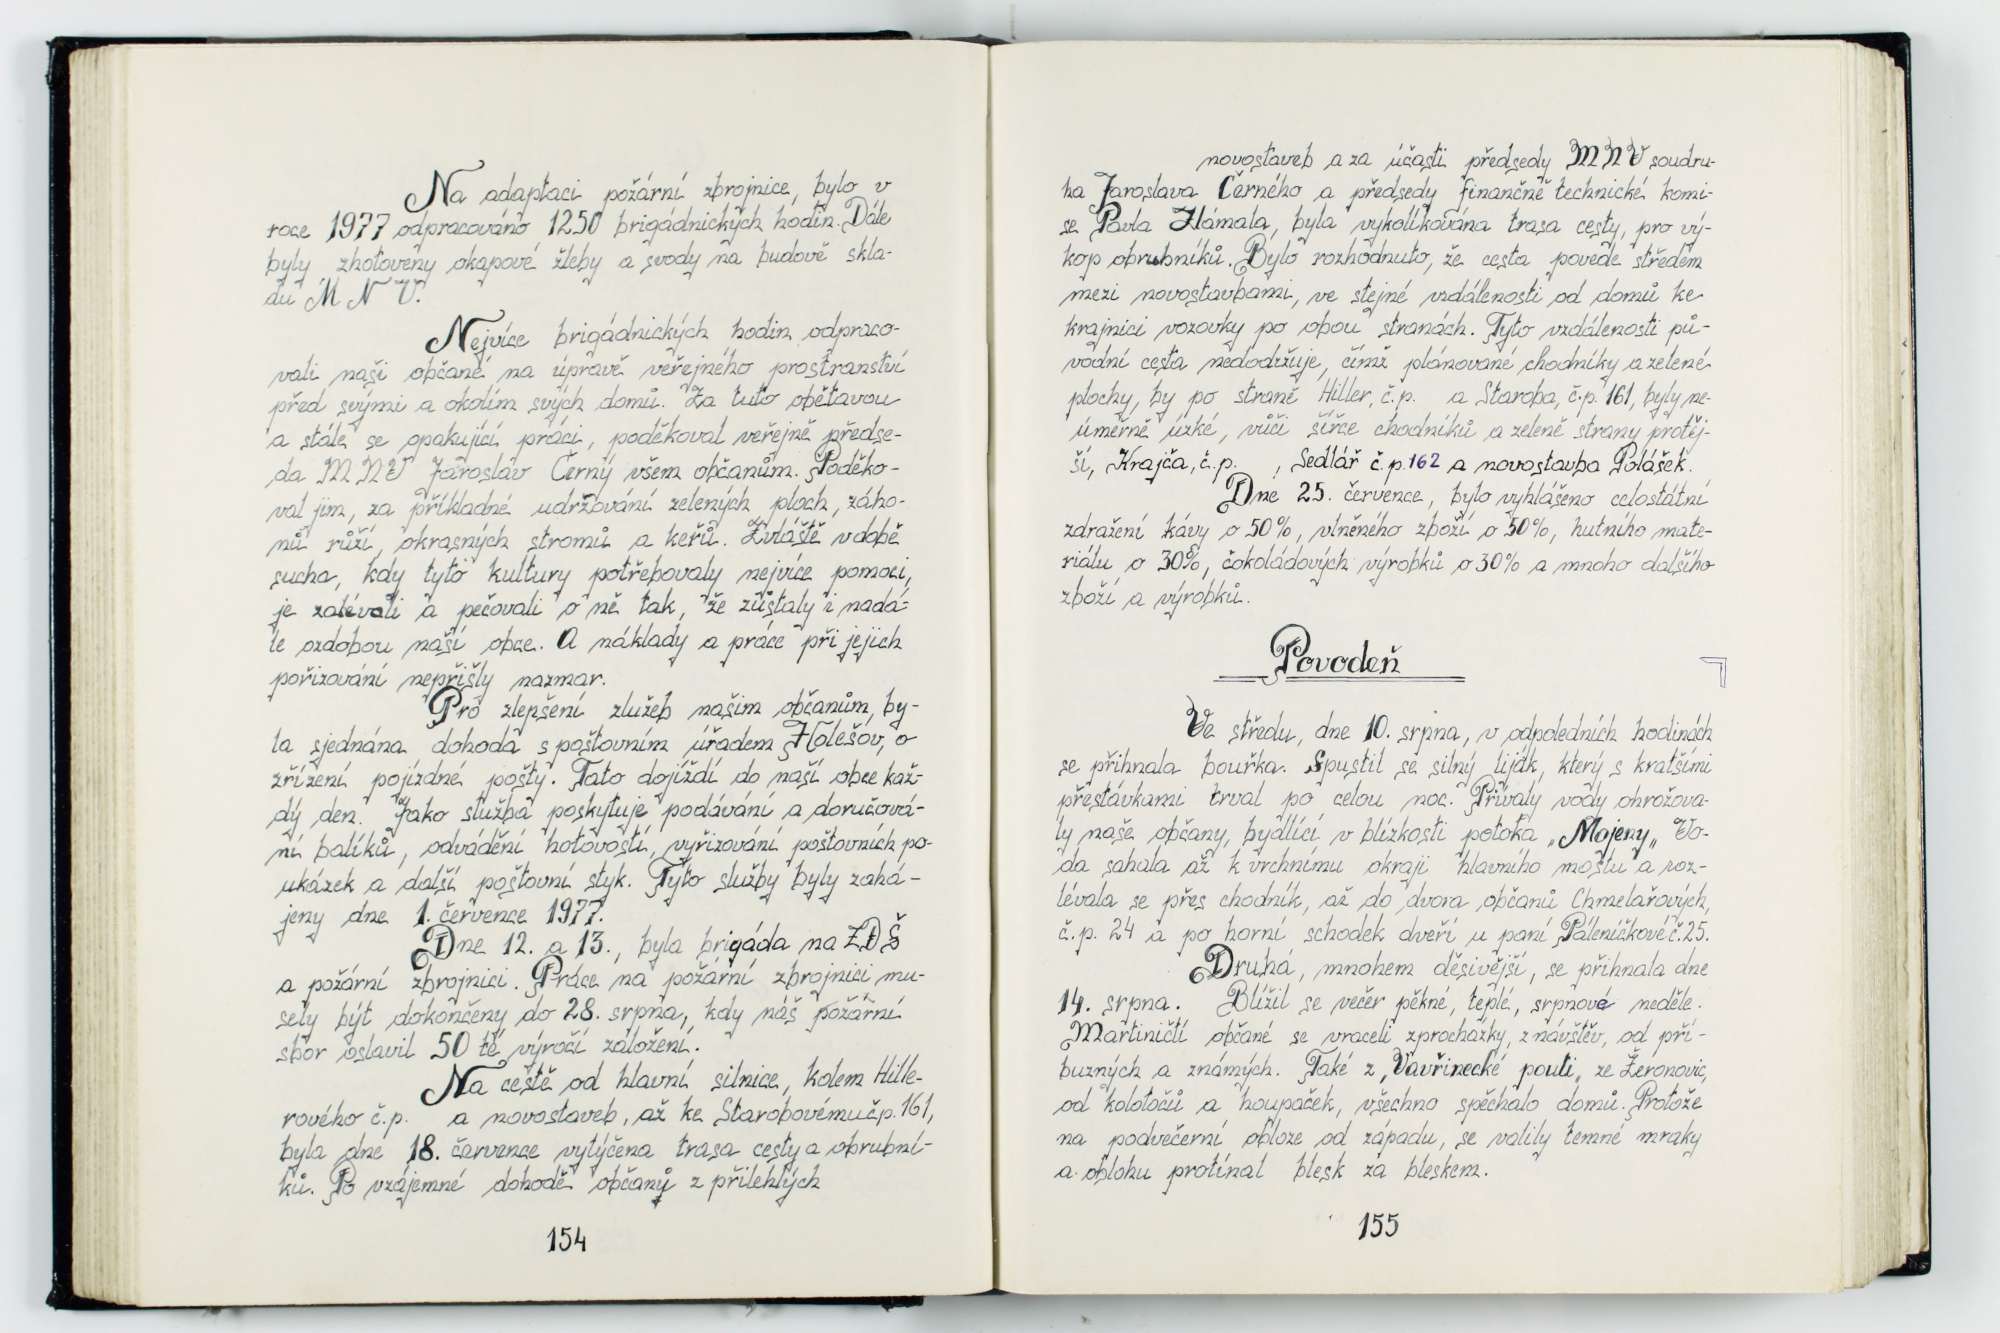 Na adaptaci požární zbrojnice, bylo v
roce 1977 odpracováno 1250 brigádnických hodin. Dále
byly zhotoveny okapové žleby a svody na budově skla-
du M N V.
Nejvíce brigádnických hodin odpraco-
vali naši občané na úpravě veřejného prostranství
před svými a okolím svých domů. Za tuto obětavou
a stále se opakující práci, poděkoval veřejně předse-
da MNV Jaroslav Černý všem občanům. Poděko-
val jim, za příkladné udržování zelených ploch, záho-
nů růží, okrasných stromů a keřů. Zvláště v době
sucha, kdy tyto kultury potřebovaly nejvíce pomoci,
je zalévali a pečovali o ně tak, že zůstaly i nadá-
le ozdobou naší obce. A náklady a práce při jejich
pořizování nepřišly nazmar.
Pro zlepšení zlužeb našim občanům, by-
la sjednána dohoda s poštovním úřadem Holešov, o
zřízení pojízdné pošty. Tato dojíždí do naší obce kaž-
dý den. Jako služba poskytuje podávání a doručová-
ní balíků, odvádění hotovostí, vyřizování poštovních po-
ukázek a další poštovní styk. Tyto služby byly zahá-
jeny dne 1. července 1977.
Dne 12. a 13., byla brigáda na ZDŠ
a požární zbrojnici. Práce na požární zbrojnici mu-
sely být dokončeny do 28. srpna, kdy náš požární
sbor oslavil 50 té výročí založení.
Na cestě od hlavní silnice, kolem Hille-
rového č.p. a novostaveb, až ke Starobovému č.p. 161,
byla dne 18. července vytýčena trasa cesty a obrubní-
ků. Po vzájemné dohodě občany z přilehlých
154
novostaveb a za účasti předsedy MNV soudru-
ha Jaroslava Černého a předsedy finančně technické komi-
se Pavla Hámala, byla vykolíkována trasa cesty, pro vý-
kop obrubníků. Bylo rozhodnuto, že cesta povede středem
mezi novostavbami, ve stejné vzdálenosti od domů ke
krajnici vozovky po obou stranách. Tyto vzdálenosti pů-
vodní cesta nedodržuje, čímž plánované chodníky a zelené
plochy, by po straně Hiller, č.p. a Staroba, č.p. 161, byly ne-
úměrně úzké, vůči šířce chodníků a zeleně strany protěj-
ší, Krajča, č.p. , Sedlář č.p. 162 a novostavba Polášek.
Dne 25. července, bylo vyhlášeno celostátní
zdražení kávy o 50%, vlněného zboží o 50%, hutního mate-
riálu o 30%, čokoládových výrobků o 30% a mnoho dalšího
zboží a výrobků.
Povodeň
Ve středu, dne 10. srpna, v odpoledních hodinách
se přihnala bouřka. Spustil se silný liják, který s kratšími
přestávkami trval po celou noc. Přívaly vody ohrožova-
ly naše občany, bydlící v blízkosti potoka „Mojeny„ Vo-
da sahala až k vrchnímu okraji hlavního mostu a roz-
lévala se přes chodník, až do dvora občanů Chmelařových,
č.p. 24 a po horní schodek dveří u paní Páleníčkové č. 25.
Druhá, mnohem děsivější, se přihnala dne
14. srpna. Blížil se večer pěkné, teplé, srpnové neděle.
Martiničtí občané se vraceli zprocházky, z návštěv, od pří-
buzných a známých. Také z „Vavřinecké pouti„ ze Žeranovic,
od kolotočů a houpaček, všechno spěchalo domů. Protože
na podvečerní obloze od západu, se valily temné mraky
a oblohu protínal blesk za bleskem.
155